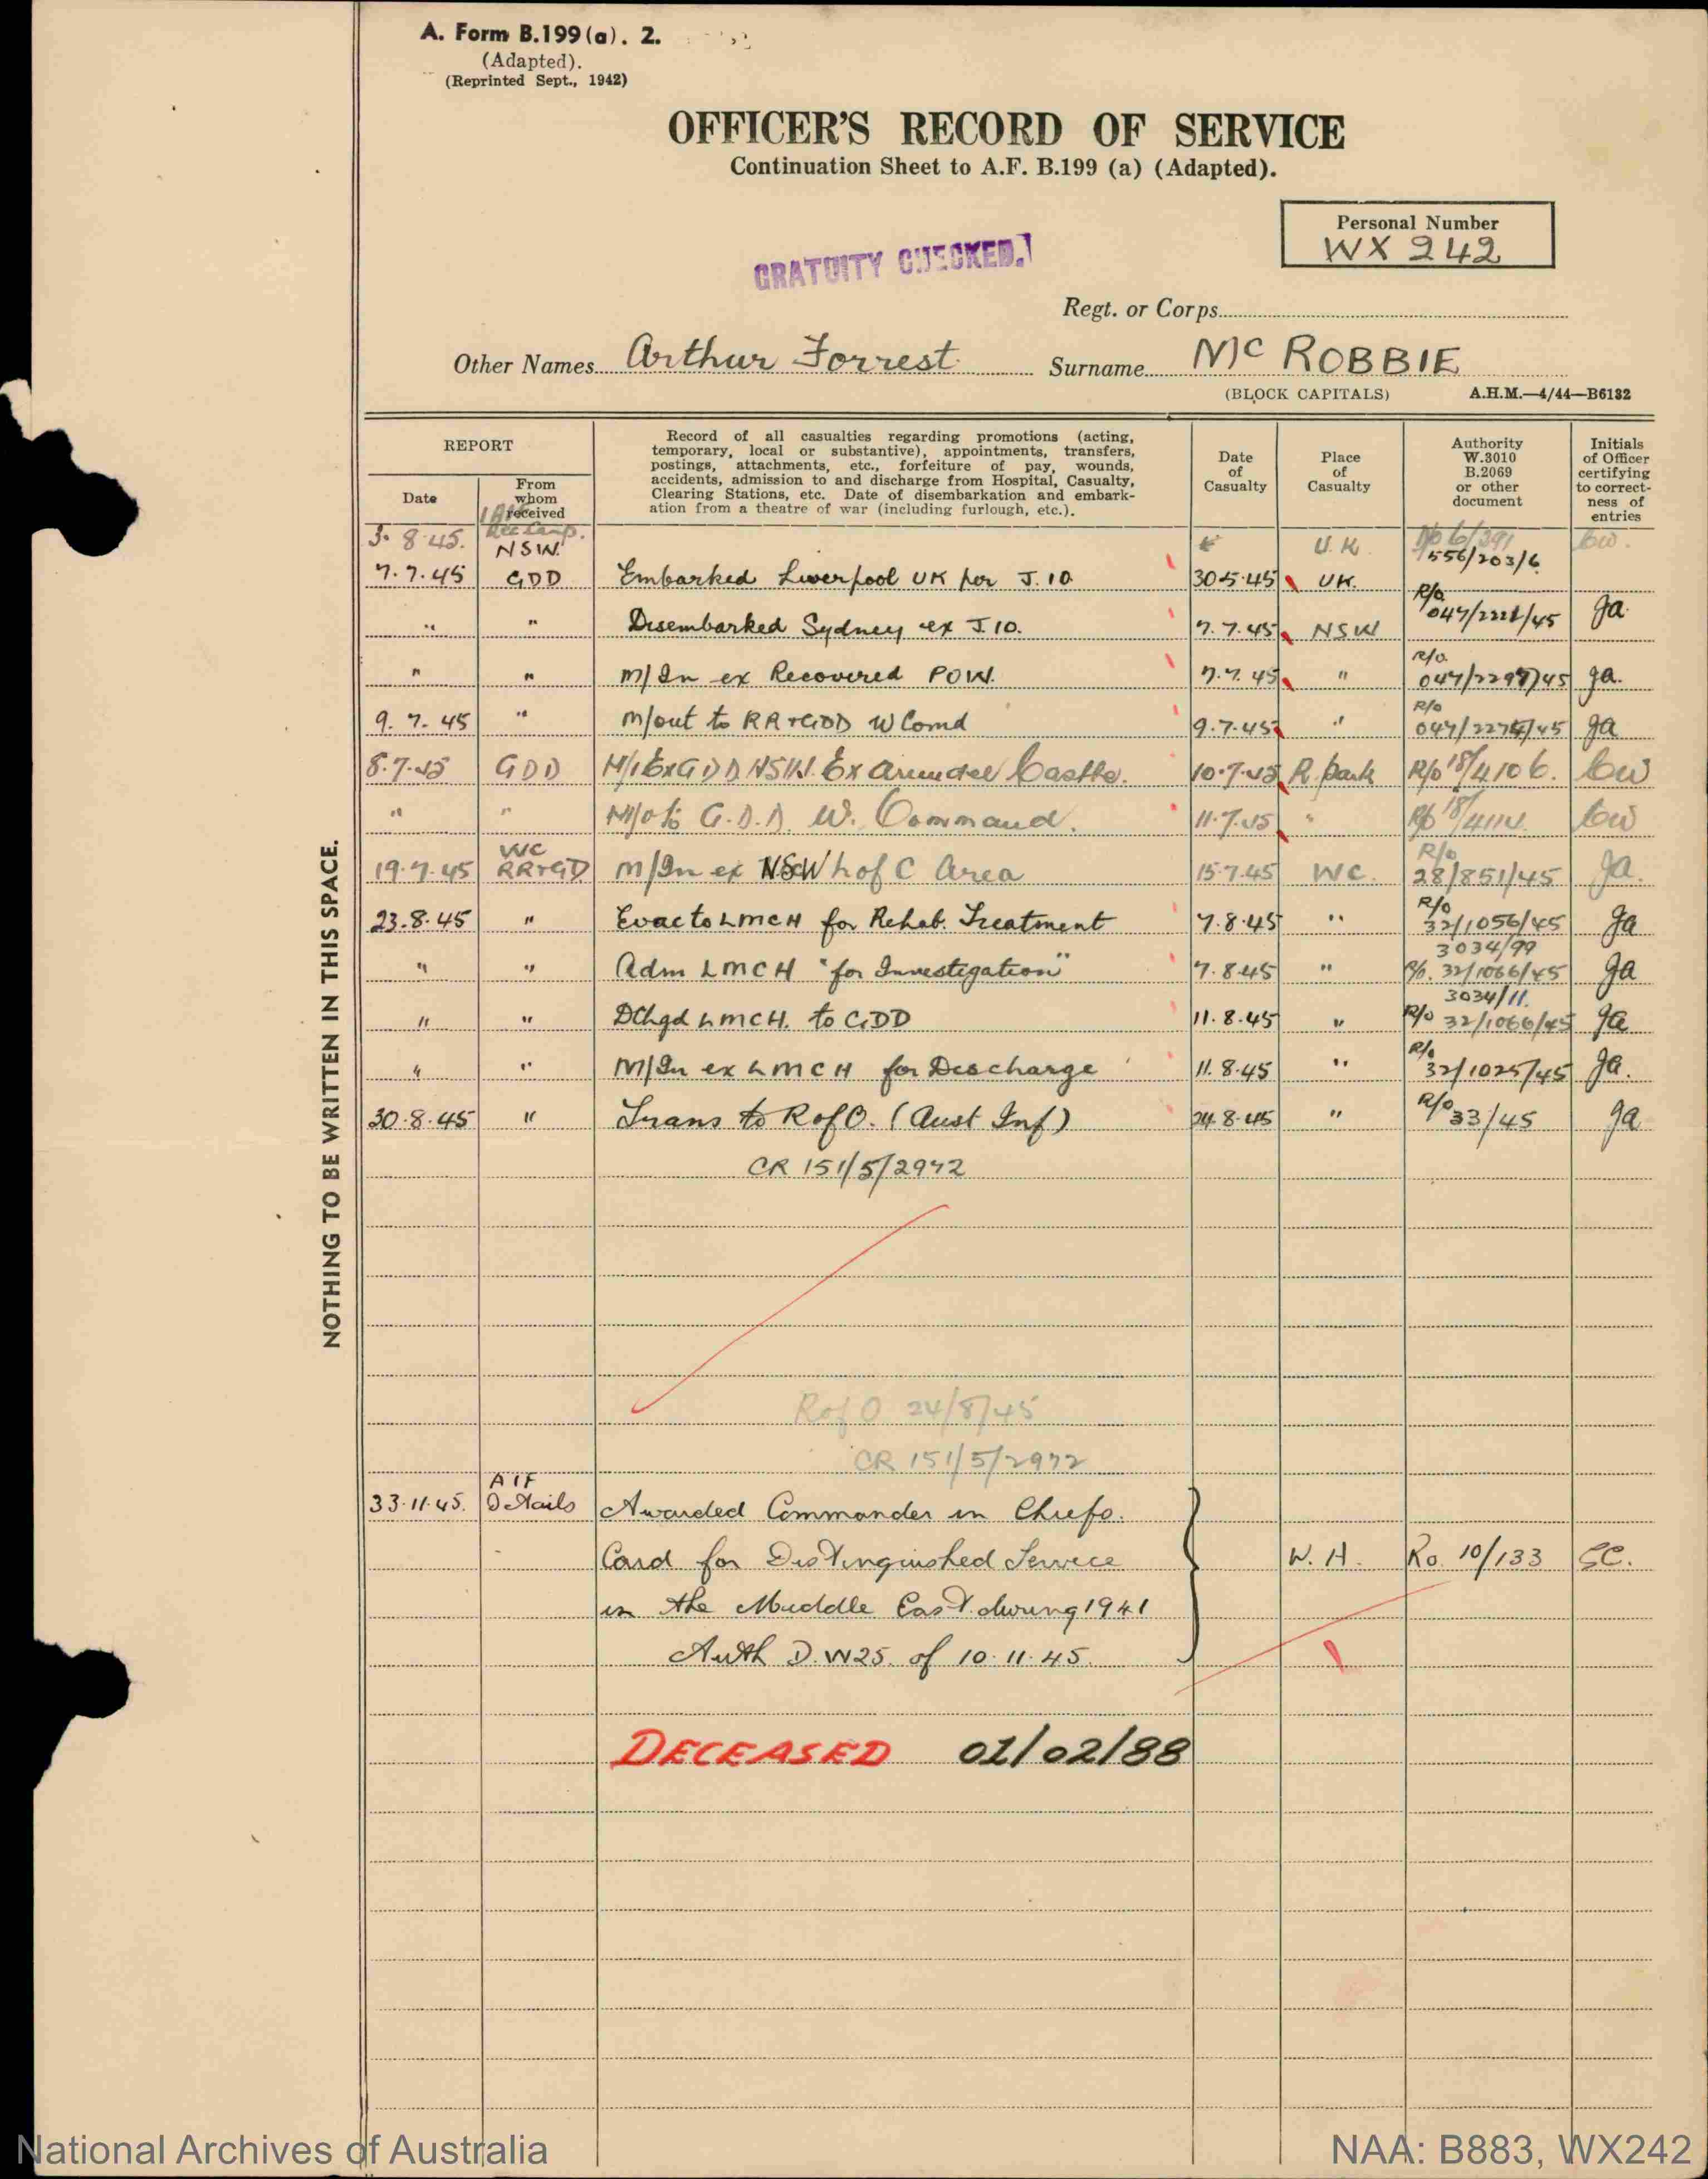 A. Form B.199(a). 2.
(Adapted).
(Reprinted Sept., 1942)
OFFICER'S RECORD OF SERVICE
Continuation Sheet to A.F. B.199 (a) (Adapted).
Personal Number
WX 242
GRATUITY CHECKED.
Regt. or Corps
Other Names Arthur Forrest Surname Mc ROBBIE
(BLOCK CAPITALS) A.H.M.—4/44—B6132
REPORT
Date
From whom received
Record of all casualties regarding promotions (acting,
temporary, local or substantive), appointments, transfers,
postings, attachments, etc., forfeiture of pay, wounds,
accidents, admission to and discharge from Hospital, Casualty,
Clearing Stations, etc. Date of disembarkation and embark-
ation from a theatre of war (including furlough, etc.).
Date of Casualty
Place of Casualty
Authority W.3010 B.2069 or other document
Initials of Officer certifying to correct-ness of entries
3. 8.45. U.K.
NSW. 556/203/6
7.7.45 GDD Embarked Liverpool UK per J.10 30.5.45 UK.
" " Disembarked Sydney ex J.10. 7.7.45 NSW R/o ga
" " M/In ex Recovered POW. 7.7.45 " R/o ga.
9. 7. 45 " M/out to RR+GDD W Comd 9.7.45 " R/o ga
8.7.45 GDD M/I Ex GDD NSW. Ex Arundel Castle. 10.7.45 R. Park R/o 18/4106.
" " M/o to G.D.D. W. Command. 11.7.45 " R/o 18/4114
19.7.45 WC RR+GD M/In ex NSW L of C Area 15.7.45 WC. R/o 28/851/45 ga.
23.8.45 " Evac to LMCH for Rehab. Treatment 7.8.45 " R/o 32/1056/45 ga
" " Adm LMCH "for Investigation" 7.8.45 " 3034/99 R/o. 32/1066/45 ga
" " DChgd LMCH. to GDD 11.8.45 " 3034/11. R/o 32/1066/45 ga
" " M/In ex LMCH for Discharge 11.8.45 " R/o 32/1025/45 ga.
30.8.45 " Trans to R of O. (Aust Inf) 24.8.45 " R/o 33/45 ga
CR 151/5/2972
R of O 24/8/45
CR 151/5/2972
33.11.45. AIF Details Awarded Commander in Chiefs.
Card for Distinguished Service W. H. Ro. 10/133 SC.
in the Middle East during 1941
Auth D.W25. of 10.11.45.
DECEASED 01/02/88
NOTHING TO BE WRITTEN IN THIS SPACE.
National Archives of Australia
NAA: B883, WX242